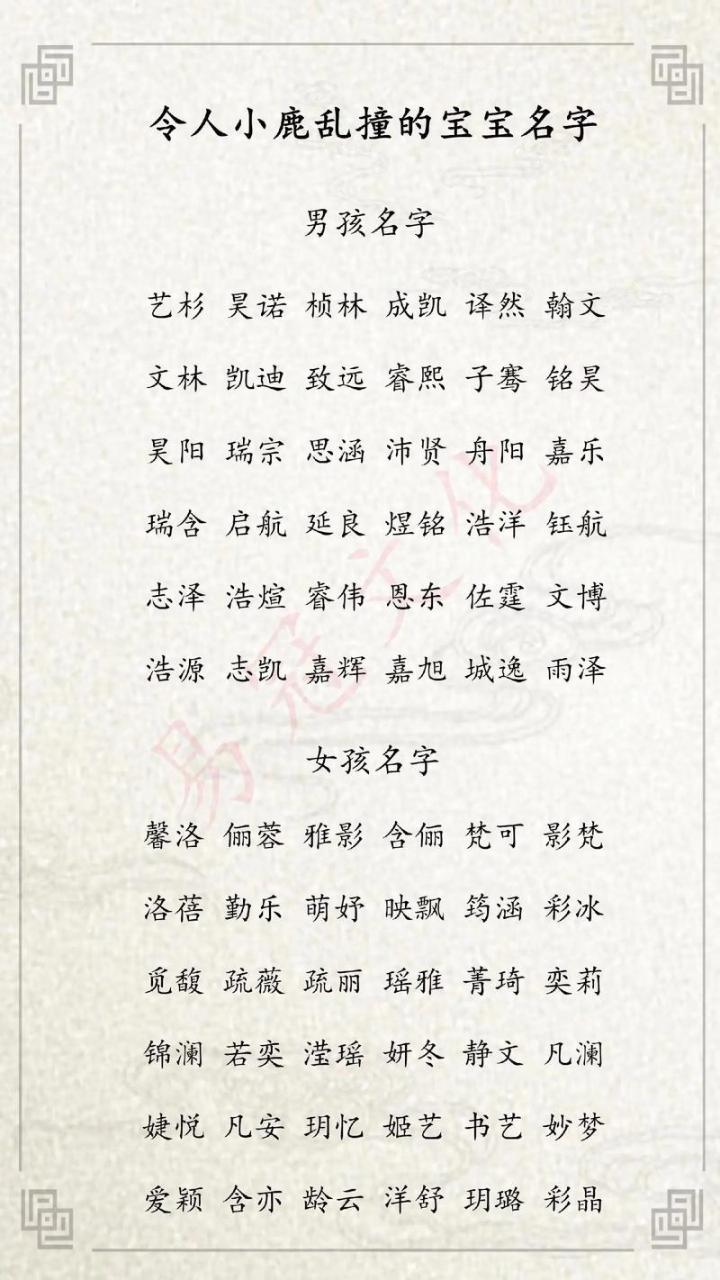 令人小鹿乱撞的宝宝名字
男孩名字
艺杉 昊诺 桢林 成凯 译然 翰文
文林 凯迪 致远 睿熙 子骞 铭昊
昊阳 瑞宗 思涵 沛贤 舟阳 嘉乐
瑞含 启航 延良 煜铭 浩洋 钰航
志泽 浩煊 睿伟 恩东 佐霆 文博
浩源 志凯 嘉辉 嘉旭 城逸 雨泽
女孩名字
馨洛 俪蓉 雅影 含俪 梵可 影梵
洛蓓 勤乐 萌妤 映飘 筠涵 彩冰
觅馥 疏薇 疏丽 瑶雅 菁琦 奕莉
锦澜 若奕 滢瑶 妍冬 静文 凡澜
婕悦 凡安 玥忆 姬艺 书艺 妙梦
爱颖 含亦 龄云 洋舒 玥璐 彩晶
易冠文化